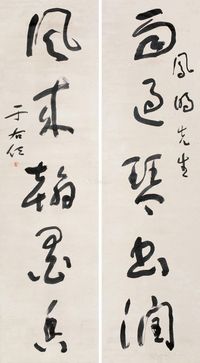 雨過琴書潤
鳳鳴先生
風來翰墨香
于右任